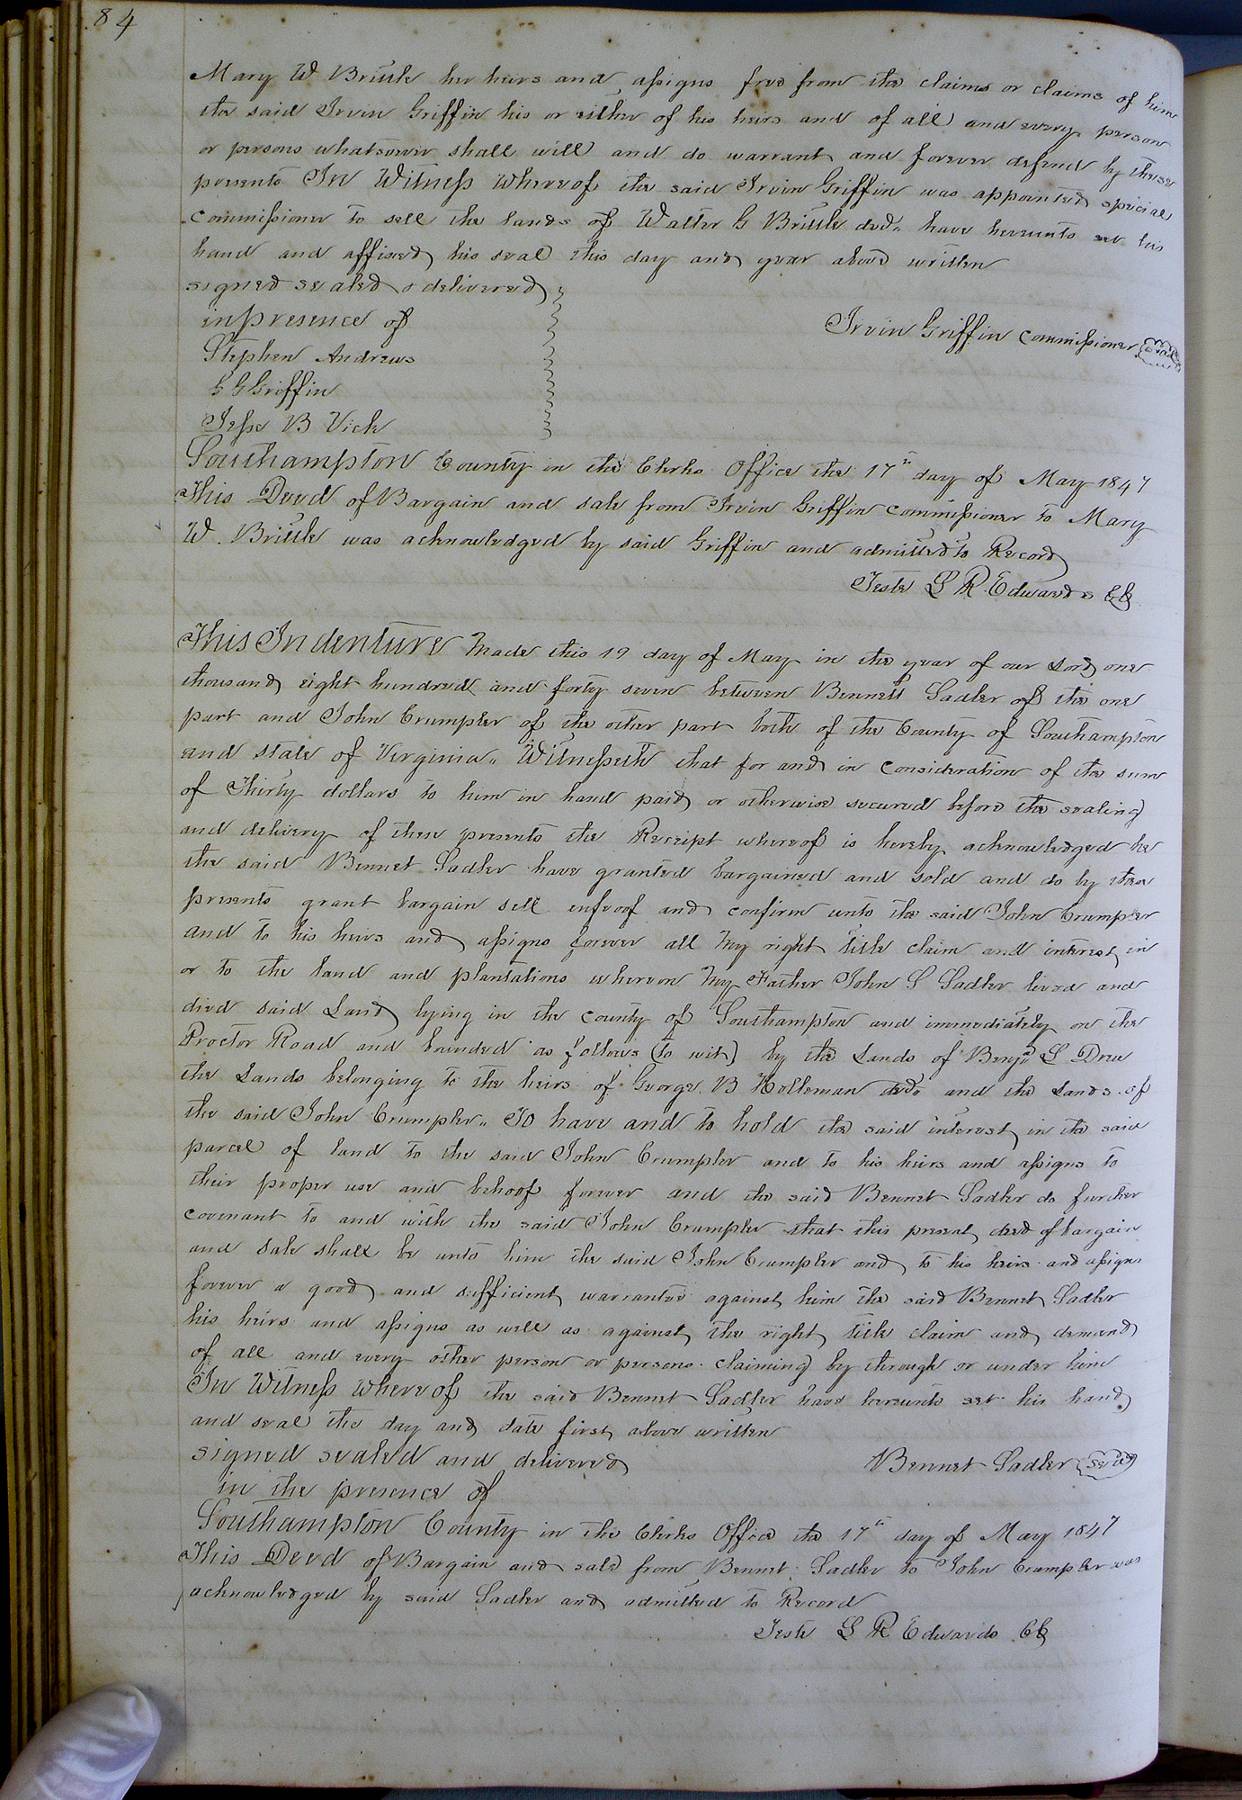 84
Mary W Brittle her heirs and assigns free from the claims or claims of him
the said Irvin Griffin his or either of his heirs and of all and every person
or persons whatsoever shall will and do warrant and forever defend by these
presents In Witness whereof the said Irvin Griffin was appointed special
commissioner to sell the lands of Walter G Brittle decd. have hereunto set his
hand and affixed his seal this day and year above written
signed sealed & delivered
in presence of
Irvin Griffin commissioner seal
Stephen Andrews
G G Griffin
Jesse B Vick
Southampton County in the Clerks Office the 17th day of May 1847
This Deed of Bargain and sale from Irvin Griffin commissioner to Mary
W. Brittle was acknowledged by said Griffin and admitted to Record
Teste L R Edwards CC
This Indenture Made this 19 day of May in the year of our Lord one
thousand eight hundred and forty seven between Bennett Sadler of the one
part and John Crumpler of the other part both of the County of Southampton
and state of Verginia. Witnesseth that for and in consideration of the sum
of Thirty dollars to him in hand paid or otherwise secured before the sealing
and delivery of these presents the Receipt whereof is hereby acknowledged he
the said Bennet Sadler have granted bargained and sold and do by these
presents grant bargain sell enfeoof and confirm unto the said John Crumpler
and to his heirs and assigns forever all my right title claim and interest in
or to the land and plantations whereon my Father John S Sadler lived and
died said Land lying in the county of Southampton and immediately on the
Proctor Road and bounded as follows (to wit) by the Lands of Benjn S Drew
the Lands belonging to the heirs of George B Holleman decd. and the Lands of
the said John Crumpler. To have and to hold the said interest in the said
parcel of land to the said John Crumpler and to his heirs and assigns to
their proper use and behoof forever and the said Bennet Sadler do further
covenant to and with the said John Crumpler that this present deed of bargain
and sale shall be unto him the said John Crumpler and to his heirs and assigns
forever a good and sufficient warrantee against him the said Bennet Sadler
his heirs and assigns as well as against the right title claim and demand
of all and every other person or persons claiming by through or under him
In Witness whereof the said Bennet Sadler have hereunto set his hand
and seal the day and date first above written
signed sealed and delivered
Bennet Sadler seal
in the presence of
Southampton County in the Clerks Office the 17th day of May 1847
This Deed of Bargain and sale from Bennet Sadler to John Crumpler was
acknowledged by said Sadler and admitted to Record
Teste L R Edwards CC